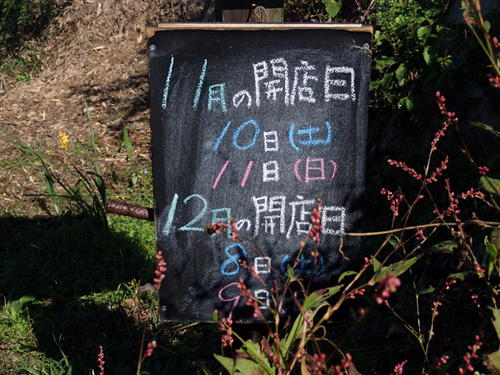 11月の開店日
10日(土)
11日(日)
12月の開店日
8日(土)
9日